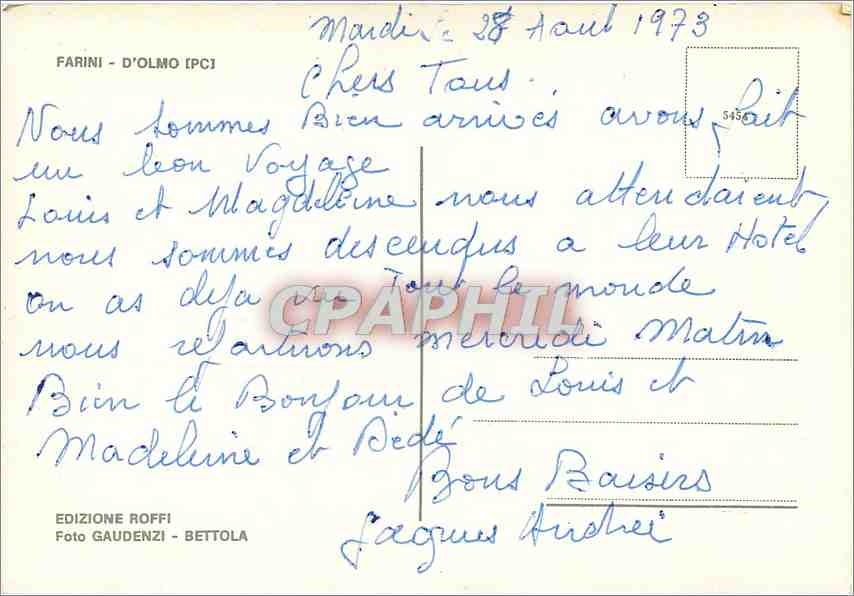 Mardi 28 Aout 1973
FARINI - D'OLMO [PC]
Chers Tous.
5454
Nous sommes Bien arrivés avons fait
un bon voyage
Louis et Magdeleine nous attendaient,
nous sommes descendus a leur Hotel
on as deja vu Tout le monde
CPAPHIL
nous repartirons mercredi Matin
Bien le Bonjour de Louis et
Madeleine et Dédé
Bons Baisers
EDIZIONE ROFFI
Foto GAUDENZI - BETTOLA
Jacques Andrée